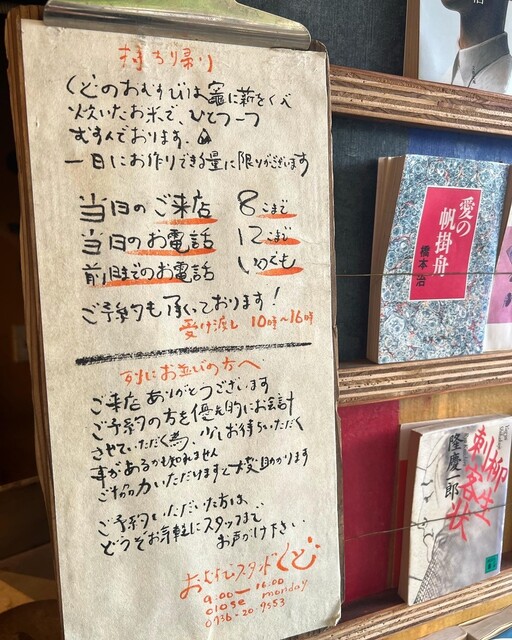 持ち帰り
くどのおむすびは竈に薪をくべ
炊いたお米で、ひとつ一つ
むすんでおります。
一日にお作りできる量に限りがございます
当日のご来店 8こまで
当日のお電話 12こまで
前日までのお電話 いくつでも
ご予約も承っております!
受け渡し 10時～16時
列にお並びの方へ
ご来店ありがとうございます
ご予約の方を優先的にお会計
させていただく為、少しお待ちいただく
事があるかも知れません
ご協力いただけますと大変助かります
ご予約いただいた方は、
どうぞお気軽にスタッフまで
お声がけ下さい。
おむすびスタンドくど
9:00～16:00
close monday
0736-20-9553
愛の帆掛舟
橋本治
柳生刺客状
隆慶一郎